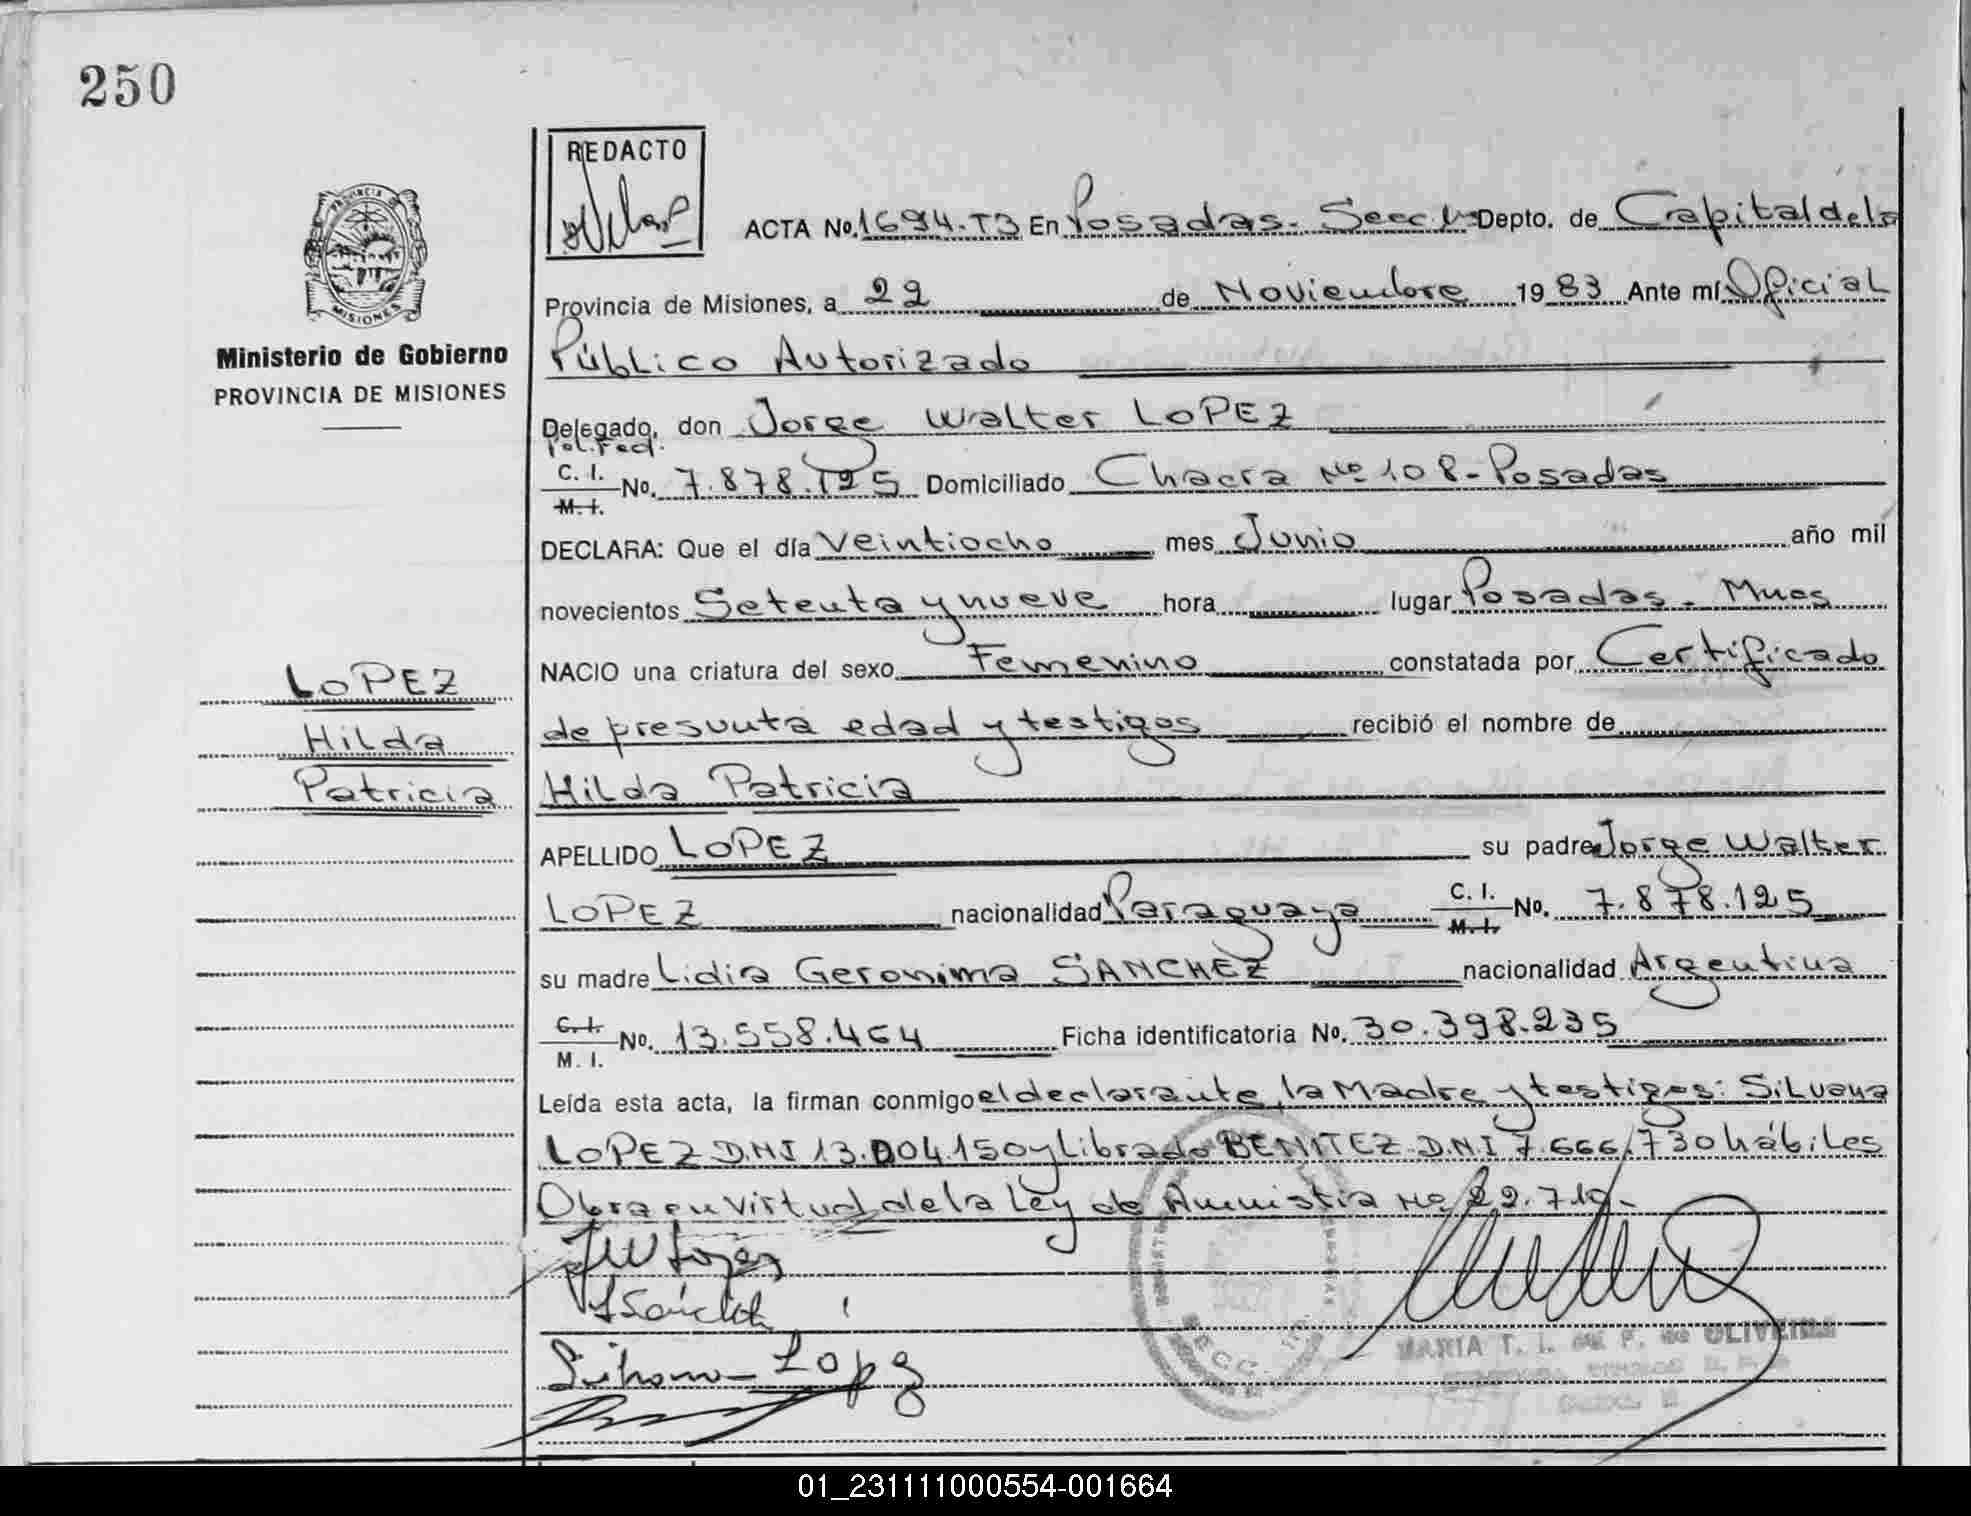 250
REDACTO
ACTA No. 1694-T3 En Posadas. Secc Depto. de Capital de la
PROVINCIA DE
MISIONES
Provincia de Misiones, a 22 de Noviembre 1983 Ante mí Oficial
Público Autorizado
Ministerio de Gobierno
PROVINCIA DE MISIONES
Delegado, don Jorge Walter LOPEZ
Pol. Fed.
C. I.
M. I.
No. 7.878.125 Domiciliado Chacra No 108-Posadas
DECLARA: Que el día veintiocho mes Junio año mil
novecientos Setenta y nueve hora lugar Posadas. Mnes
NACIO una criatura del sexo Femenino constatada por Certificado
de presunta edad y testigos recibió el nombre de
Hilda Patricia
LOPEZ
Hilda
Patricia
APELLIDO LOPEZ su padre Jorge Walter
LOPEZ nacionalidad Paraguaya C. I. M. I. No. 7.878.125
su madre Lidia Geronima SANCHEZ nacionalidad Argentina
C. I.
M. I.
No. 13.558.464 Ficha identificatoria No. 30.398.235
Leída esta acta, la firman conmigo el declarante, la Madre y testigos: Silvana
LOPEZ D.N.I 13.004.150 y Librado BENITEZ D.N.I 7.666.730 hábiles
Obra en virtud de la Ley de Amnistia No 22.710.-
JW Lopez
LSanchez
Silvana Lopez
SECC.
MARIA T. I. de P. de OLIVEIRA
01_231111000554-001664